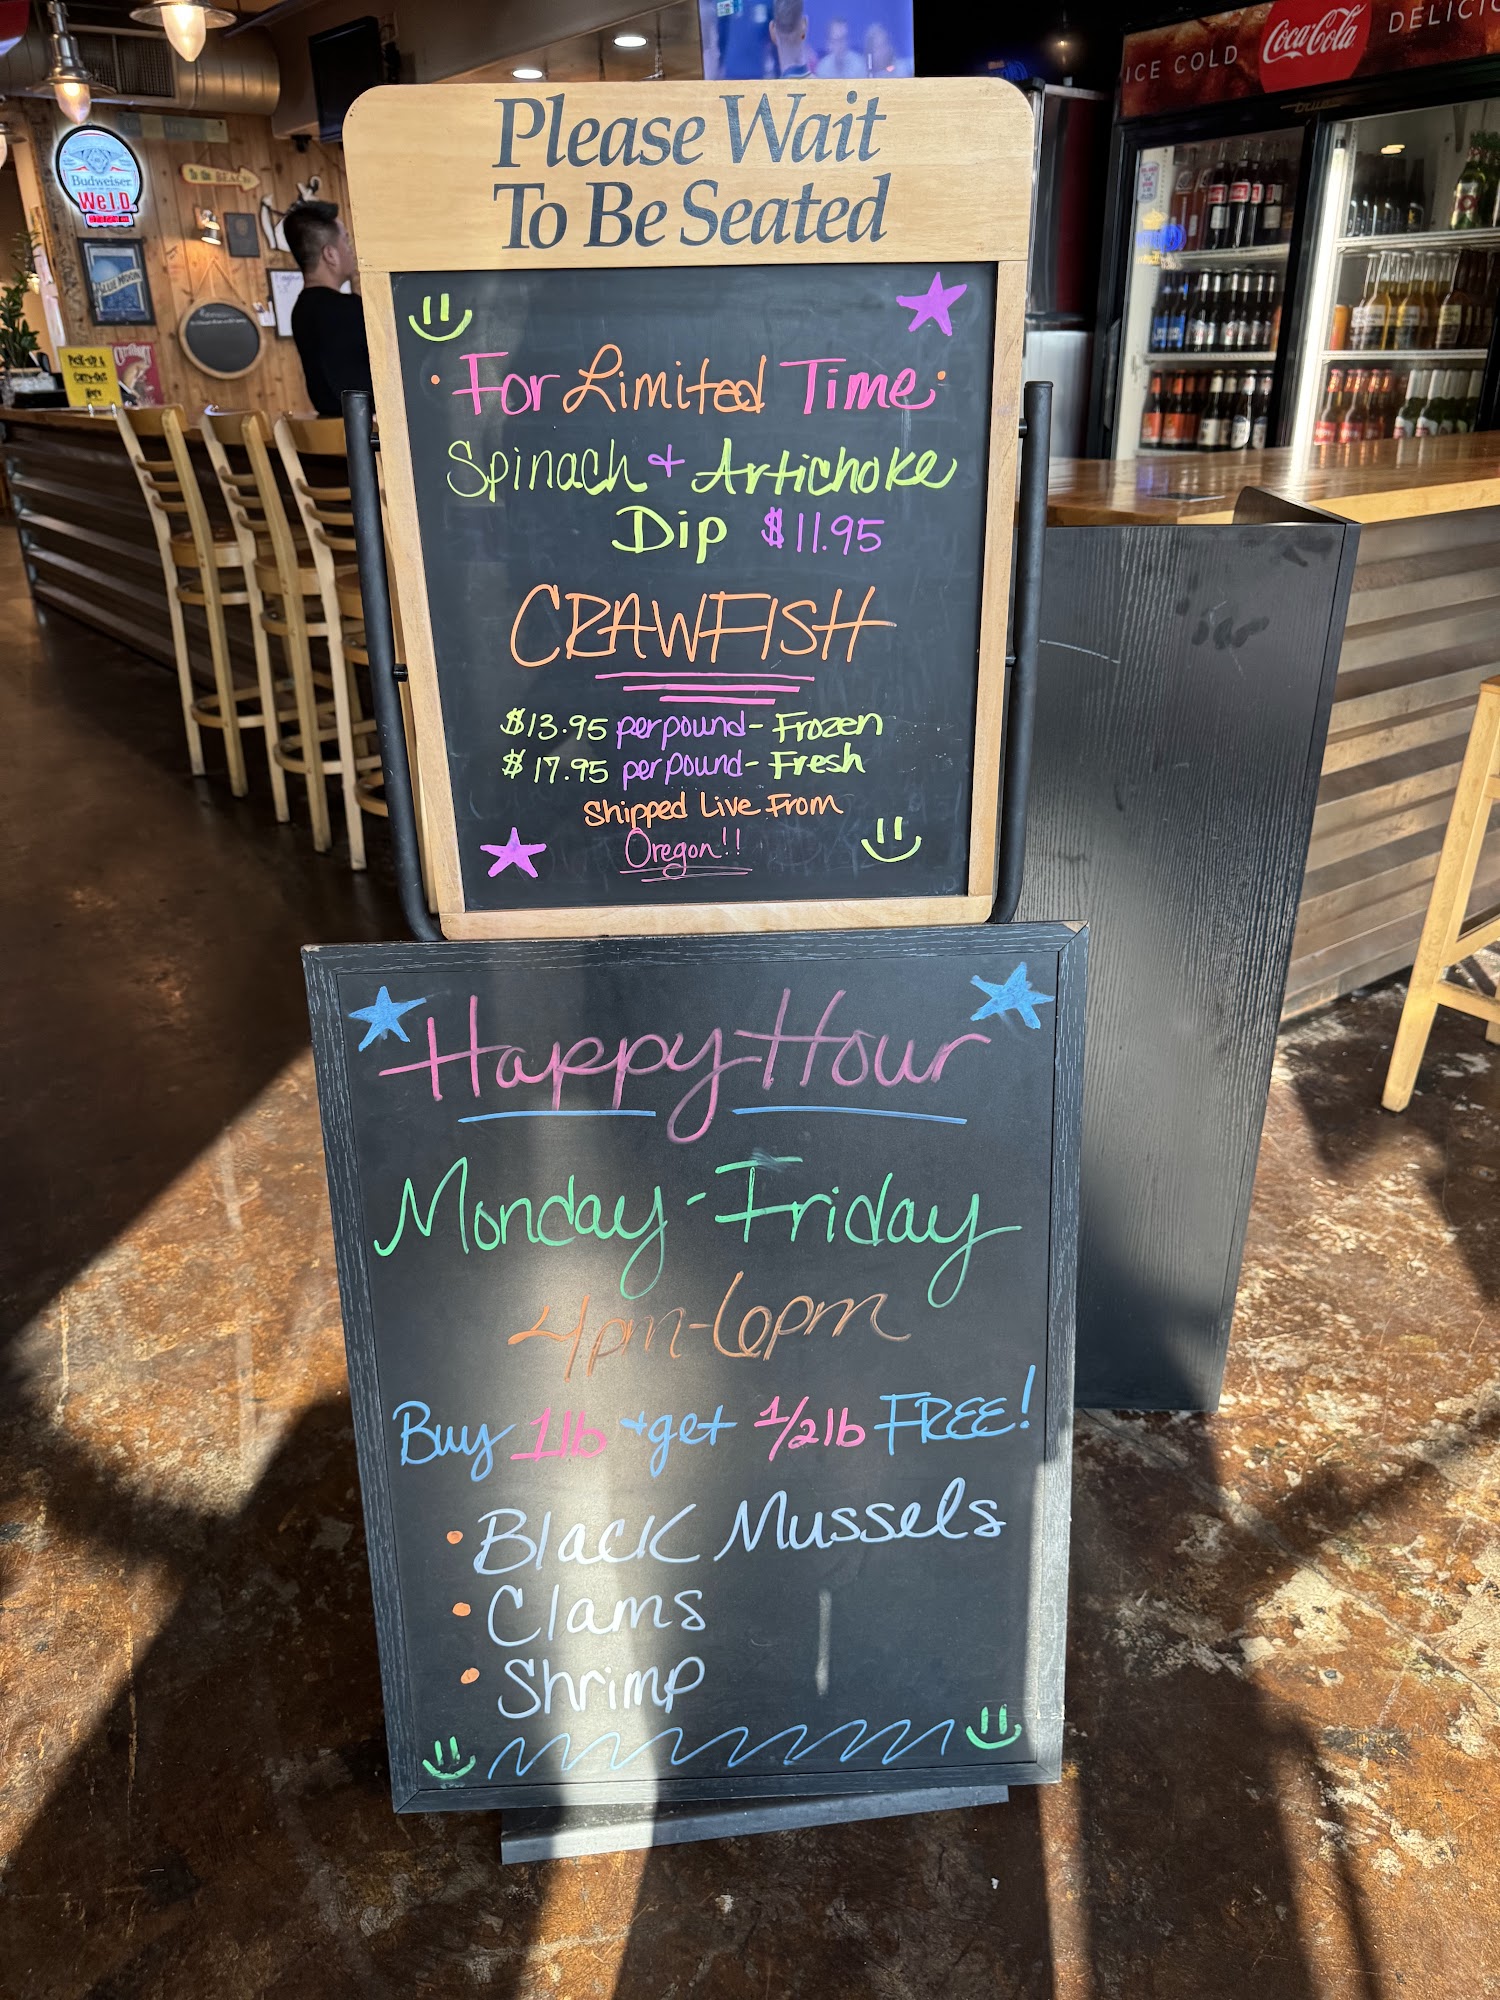 Please Wait
To Be Seated
For Limited Time
Spinach + Artichoke
Dip $11.95
CRAWFISH
$13.95 per pound - Frozen
$17.95 per pound - Fresh
Shipped Live From
Oregon!!
Happy Hour
Monday - Friday
4pm-6pm
Buy 1lb + get 1/2lb FREE!
• Black Mussels
• Clams
• Shrimp
ICE COLD Coca-Cola DELICIO
Budweiser
We I.D.
To the BEACH
BLUE MOON
Pick-up &
Carry-outs
Here